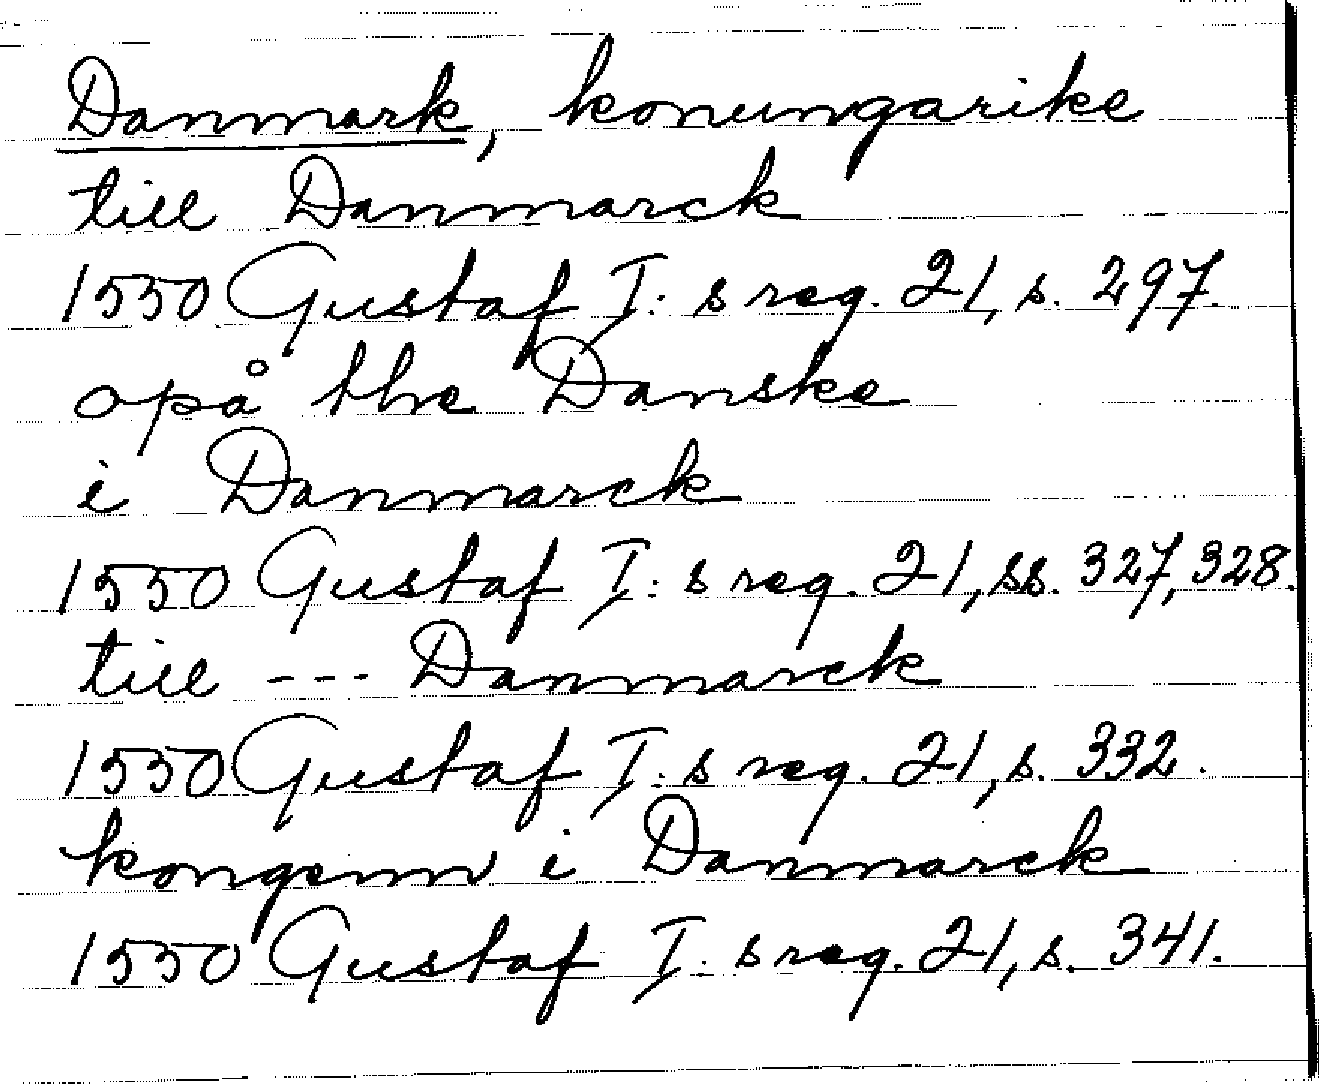 Danmark, konungarike
till Danmarck
1550 Gustaf I: s reg. 21, s. 297.
opå the Danske
i Danmarck
1550 Gustaf I: s reg. 21, ss. 327, 328.
till --- Danmarck
1550 Gustaf I: s reg. 21, s. 332.
kongenn i Danmarck
1550 Gustaf I: s reg. 21, s. 341.